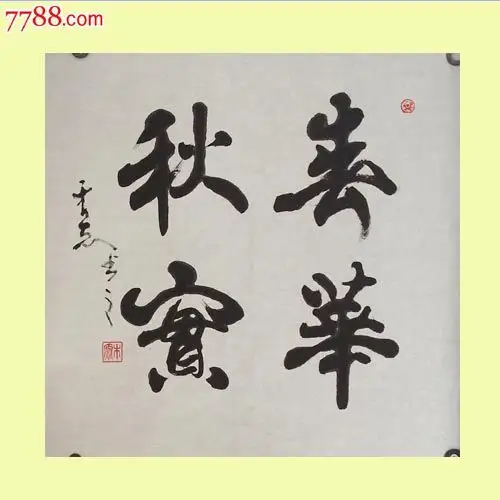 7788.com
春華
秋實